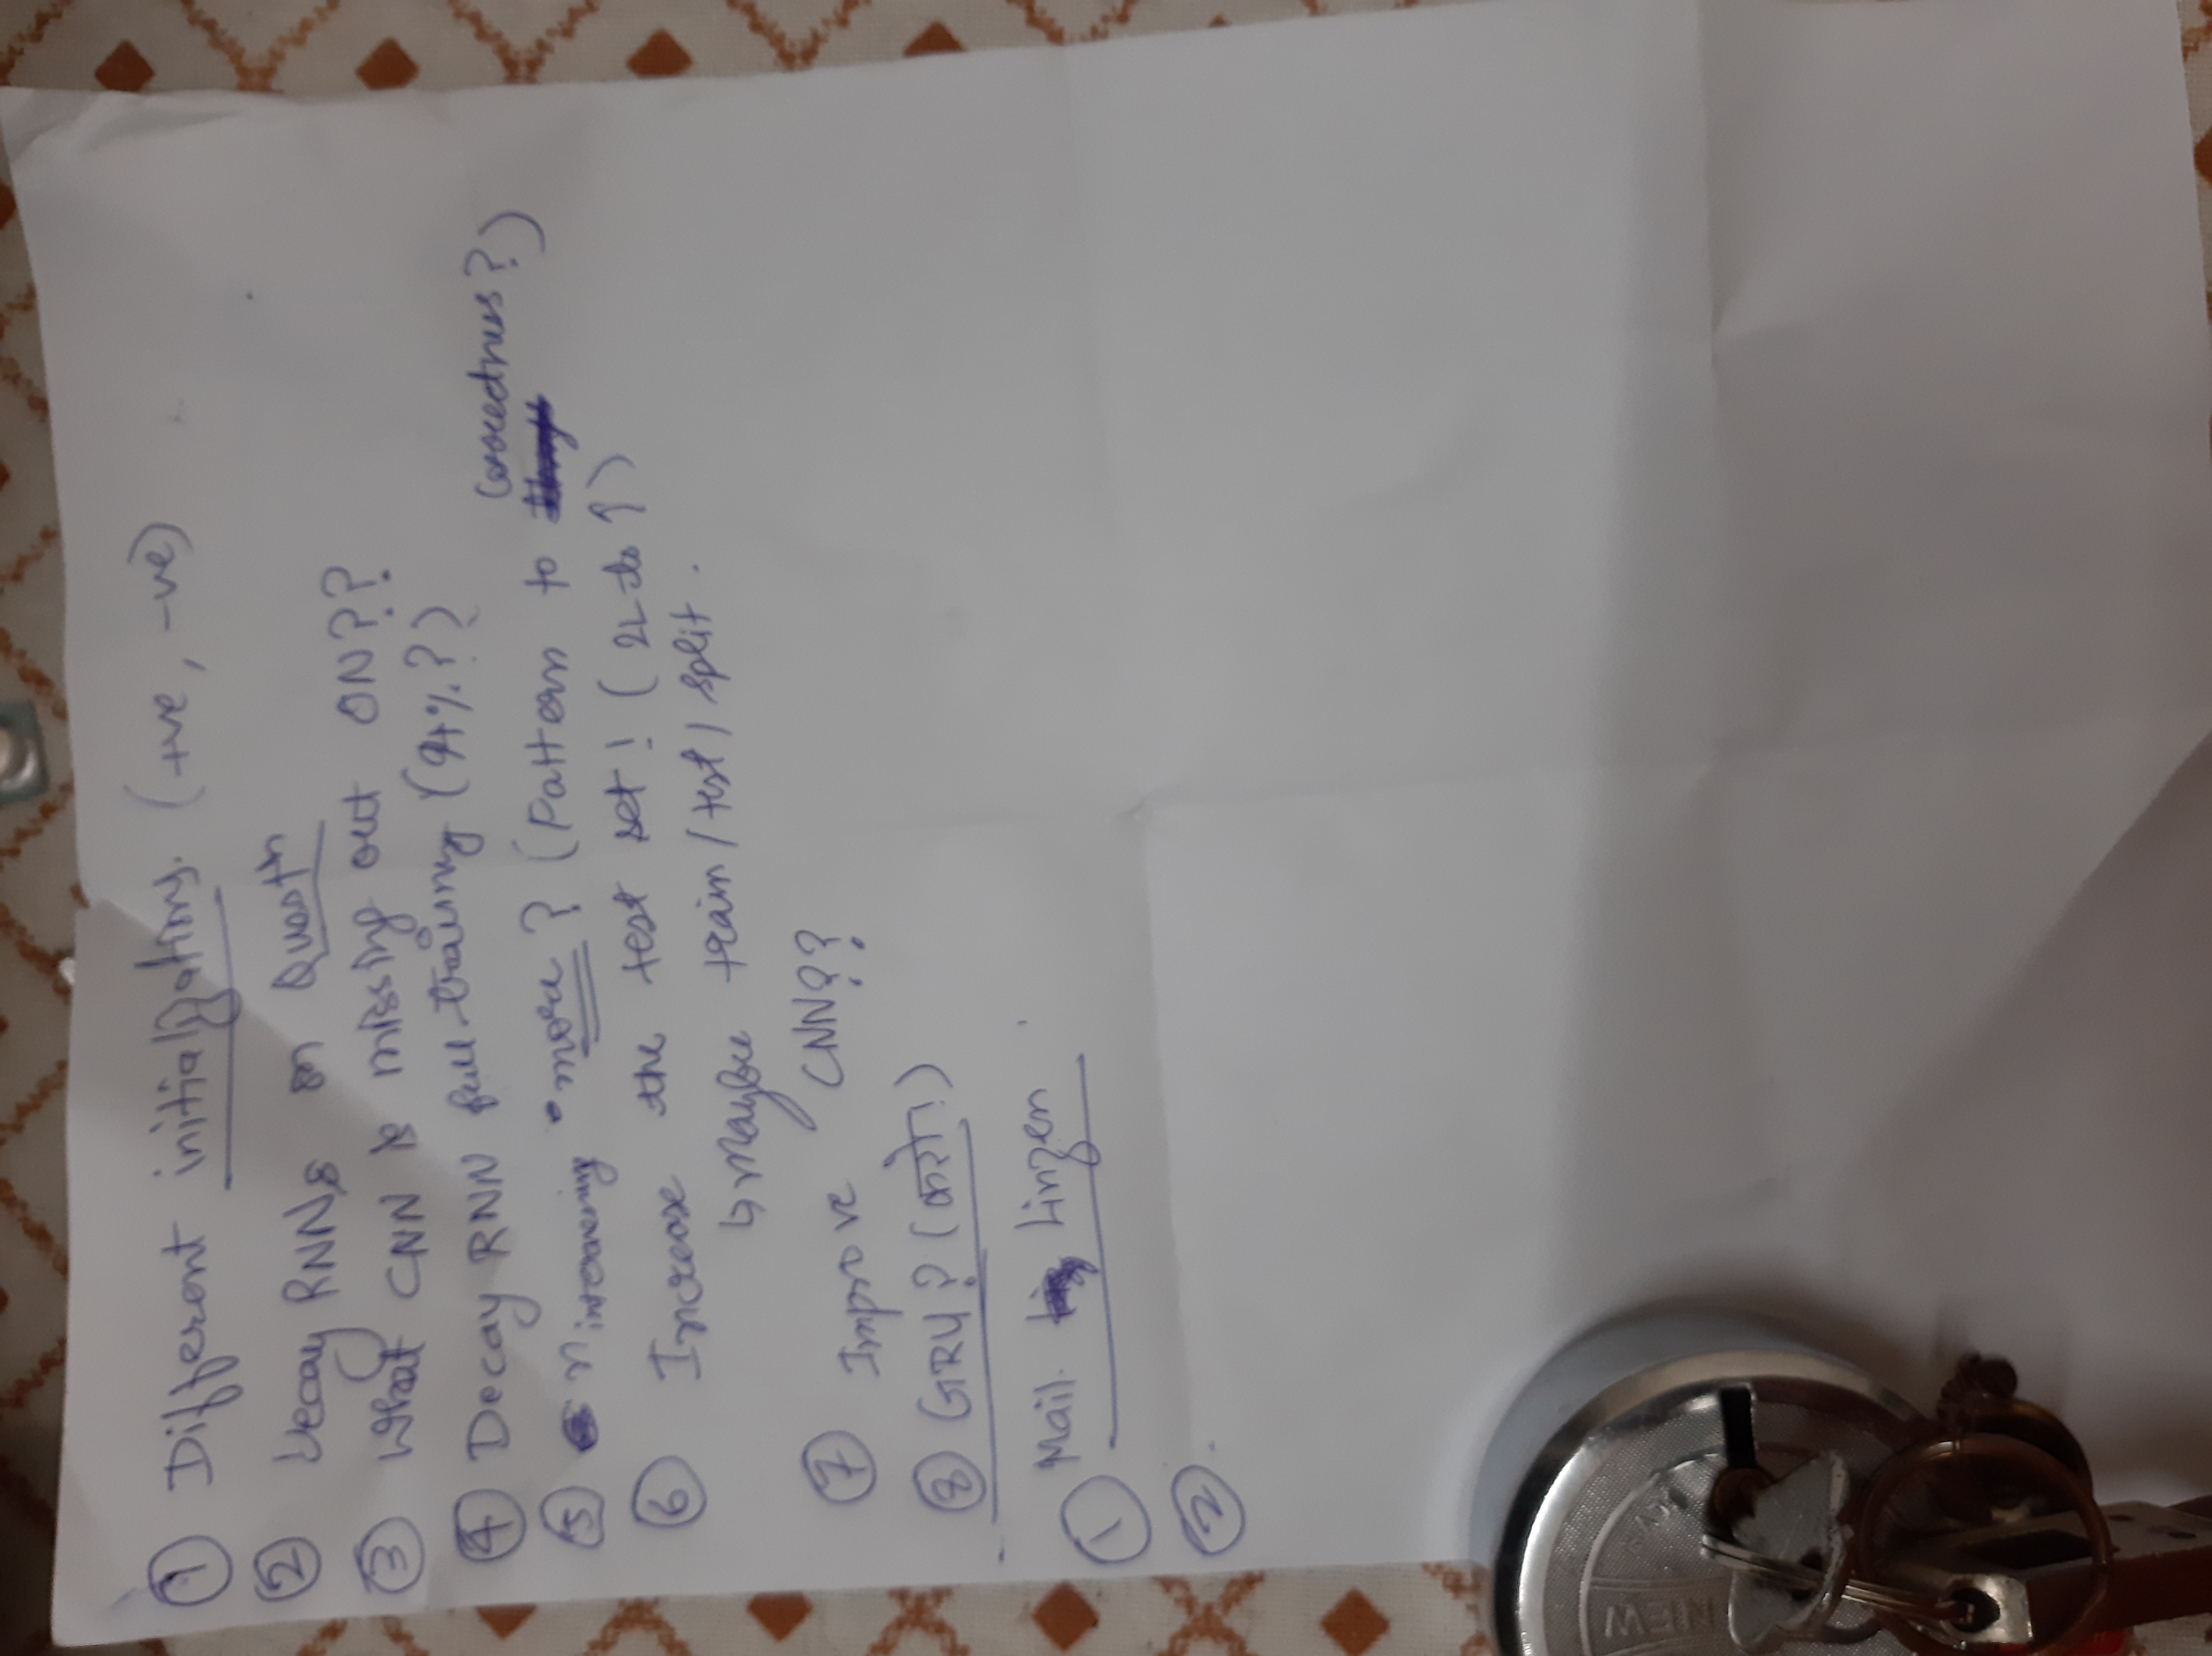 ① Different initializations. (+ve, -ve)
② Decay RNNs on
③ What CNN is missing out ON??
④ Decay RNN full training (94%?)
⑤ n intervening more? (Pattern to correctness?)
⑥ Increase the test set! (2L to ↑)
↳ Maybe train/test/split.
⑦ Improve CNN??
⑧ GRU? (करो!)
① Mail Linzen
②.
NEW